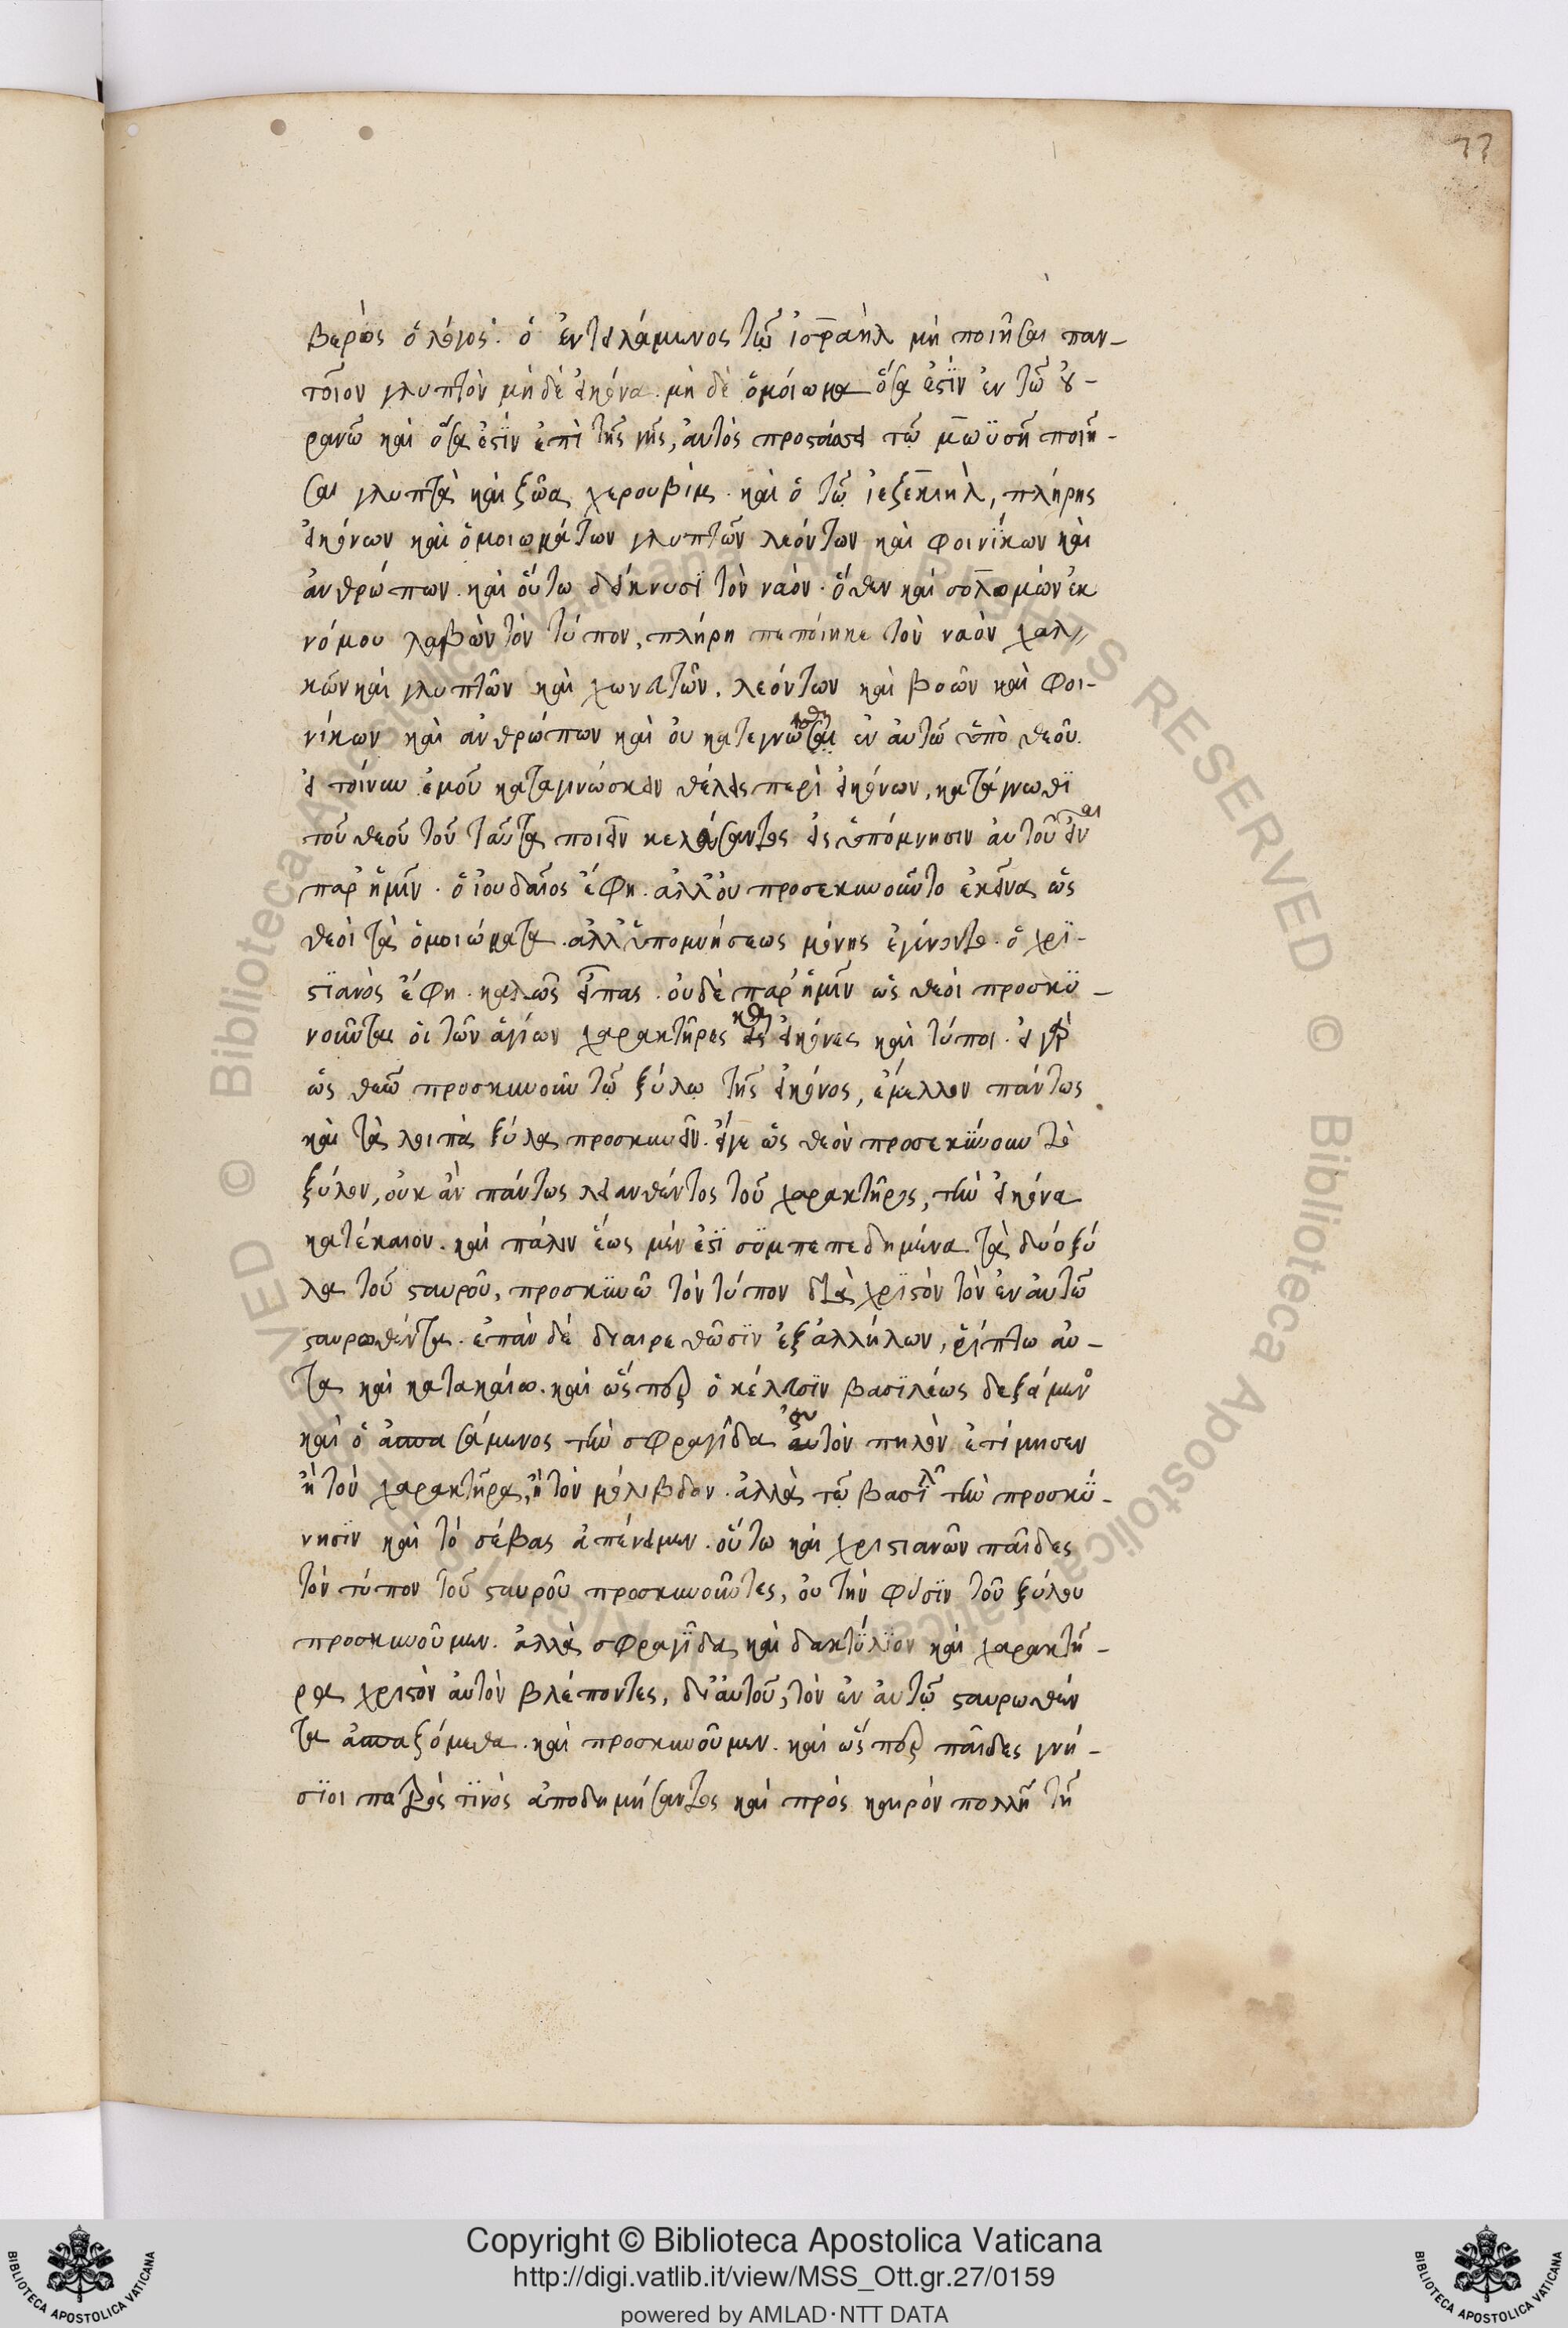 77
βερὸς ὁ λόγος· ὁ ἐντειλάμενος τῷ ἰσραὴλ μὴ ποιῆσαι παν-
τοῖον γλυπτὸν μηδὲ εἰκόνα. μὴ δὲ ὁμοίωμα ὅσα ἐστὶν ἐν τῷ οὐ-
ρανῷ καὶ ὅσα ἐστὶν ἐπὶ τῆς γῆς, αὐτὸς προστάσσει τῷ μωϋσῇ ποιῆ-
σαι γλυπτὰ καὶ ζῶα χερουβὶμ. καὶ ὁ τῷ ἰεζεκιὴλ, πλήρης
εἰκόνων καὶ ὁμοιωμάτων γλυπτῶν λεόντων καὶ φοινίκων καὶ
ἀνθρώπων. καὶ οὕτω δείκνυσι τὸν ναόν. ὅθεν καὶ σολομὼν ἐκ
νόμου λαβὼν τὸν τύπον, πλήρη πεποίηκε τὸν ναὸν χαλ-
κῶν καὶ γλυπτῶν καὶ χωνευτῶν. λεόντων καὶ βοῶν καὶ φοι-
νίκων καὶ ἀνθρώπων καὶ οὐ κατεγνῶσαι ἐν αὐτῷ ὑπὸ θεοῦ.
εἰ τοίνυν ἐμοῦ καταγινώσκειν θέλεις περὶ εἰκόνων, κατάγνωθι
τοῦ θεοῦ τοῦ ταῦτα ποιεῖν κελεύσαντος εἰς ὑπόμνησιν αὐτοῦ εἶναι
παρ' ἡμῖν. ὁ ἰουδαῖος ἔφη. ἀλλ' οὐ προσεκυνοῦντο ἐκεῖνα ὡς
θεοὶ τὰ ὁμοιώματα. ἀλλ' ὑπομνήσεως μόνης ἐγίνοντο. ὁ χρι-
στιανὸς ἔφη. καλῶς εἶπας. οὐδὲ παρ' ἡμῖν ὡς θεοὶ προσκυ-
νοῦνται οἱ τῶν ἁγίων χαρακτῆρες καὶ εἰκόνες καὶ τύποι. εἰ γὰρ
ὡς θεῷ προσκυνοῦν τῷ ξύλῳ τῆς εἰκόνος, ἔμελλον πάντως
καὶ τὰ λοιπὰ ξύλα προσκυνεῖν. εἴγε ὡς θεὸν προσεκύνουν τὸ
ξύλον, οὐκ ἂν πάντως λειανθέντος τοῦ χαρακτῆρος, τὴν εἰκόνα
κατέκαιον. καὶ πάλιν ἕως μέν ἐστι συμπεπεδημένα τὰ δύο ξύ
λα τοῦ σταυροῦ, προσκυνῶ τὸν τύπον διὰ χριστὸν τὸν ἐν αὐτῷ
σταυρωθέντα. ἐπὰν δὲ διαιρεθῶσιν ἐξ ἀλλήλων, ῥίπτω αὐ-
τὰ καὶ κατακαίω. καὶ ὥσπερ ὁ κέλευσιν βασιλέως δεξάμενος
καὶ ὁ ἀσπασάμενος τὴν σφραγῖδα οὐ τὸν πηλὸν ἐτίμησεν
ἢ τὸν χαρακτῆρα, ἢ τὸν μόλιβδον. ἀλλὰ τῷ βασιλεῖ τὴν προσκύ-
νησιν καὶ τὸ σέβας ἀπένειμεν. οὕτω καὶ χριστιανῶν παῖδες
τὸν τύπον τοῦ σταυροῦ προσκυνοῦντες, οὐ τὴν φύσιν τοῦ ξύλου
προσκυνοῦμεν. ἀλλὰ σφραγῖδα καὶ δακτύλιον καὶ χαρακτῆ-
ρα χριστὸν αὐτὸν βλέποντες, δι' αὐτοῦ, τὸν ἐν αὐτῷ σταυρωθέν
τα ἀσπαζόμεθα. καὶ προσκυνοῦμεν. καὶ ὥσπερ παῖδες γνή-
σιοι πατρός τινὸς ἀποδημήσαντος καὶ πρὸς καιρὸν πολλῇ τῇ
Copyright © Biblioteca Apostolica Vaticana
http://digi.vatlib.it/view/MSS_Ott.gr.27/0159
powered by AMLAD·NTT DATA
BIBLIOTECA APOSTOLICA VATICANA
BIBLIOTECA APOSTOLICA VATICANA